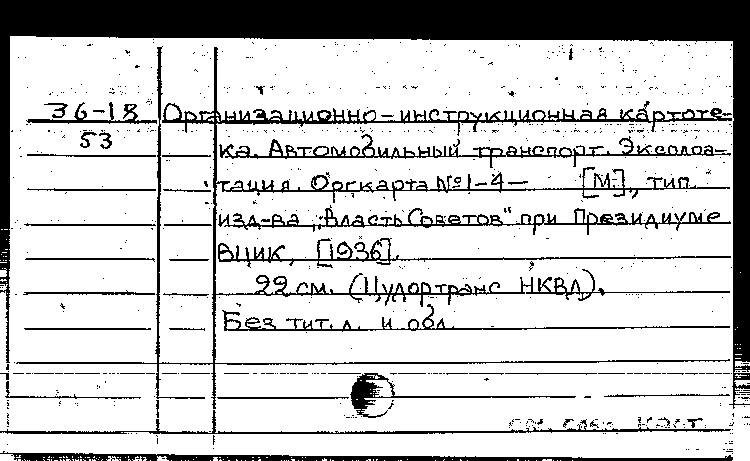 36-18 Организационно-инструкционная картоте-
53 ка. Автомобильный транспорт. Эксплоа-
тация. Оргкарта №1-4- [М], тип.
изд-ва „Власть Советов" при Президиуме
ВЦИК, [1936].
22 см. (Цудортранс НКВД).
Без тит. л. и обл.
см. след. карт.